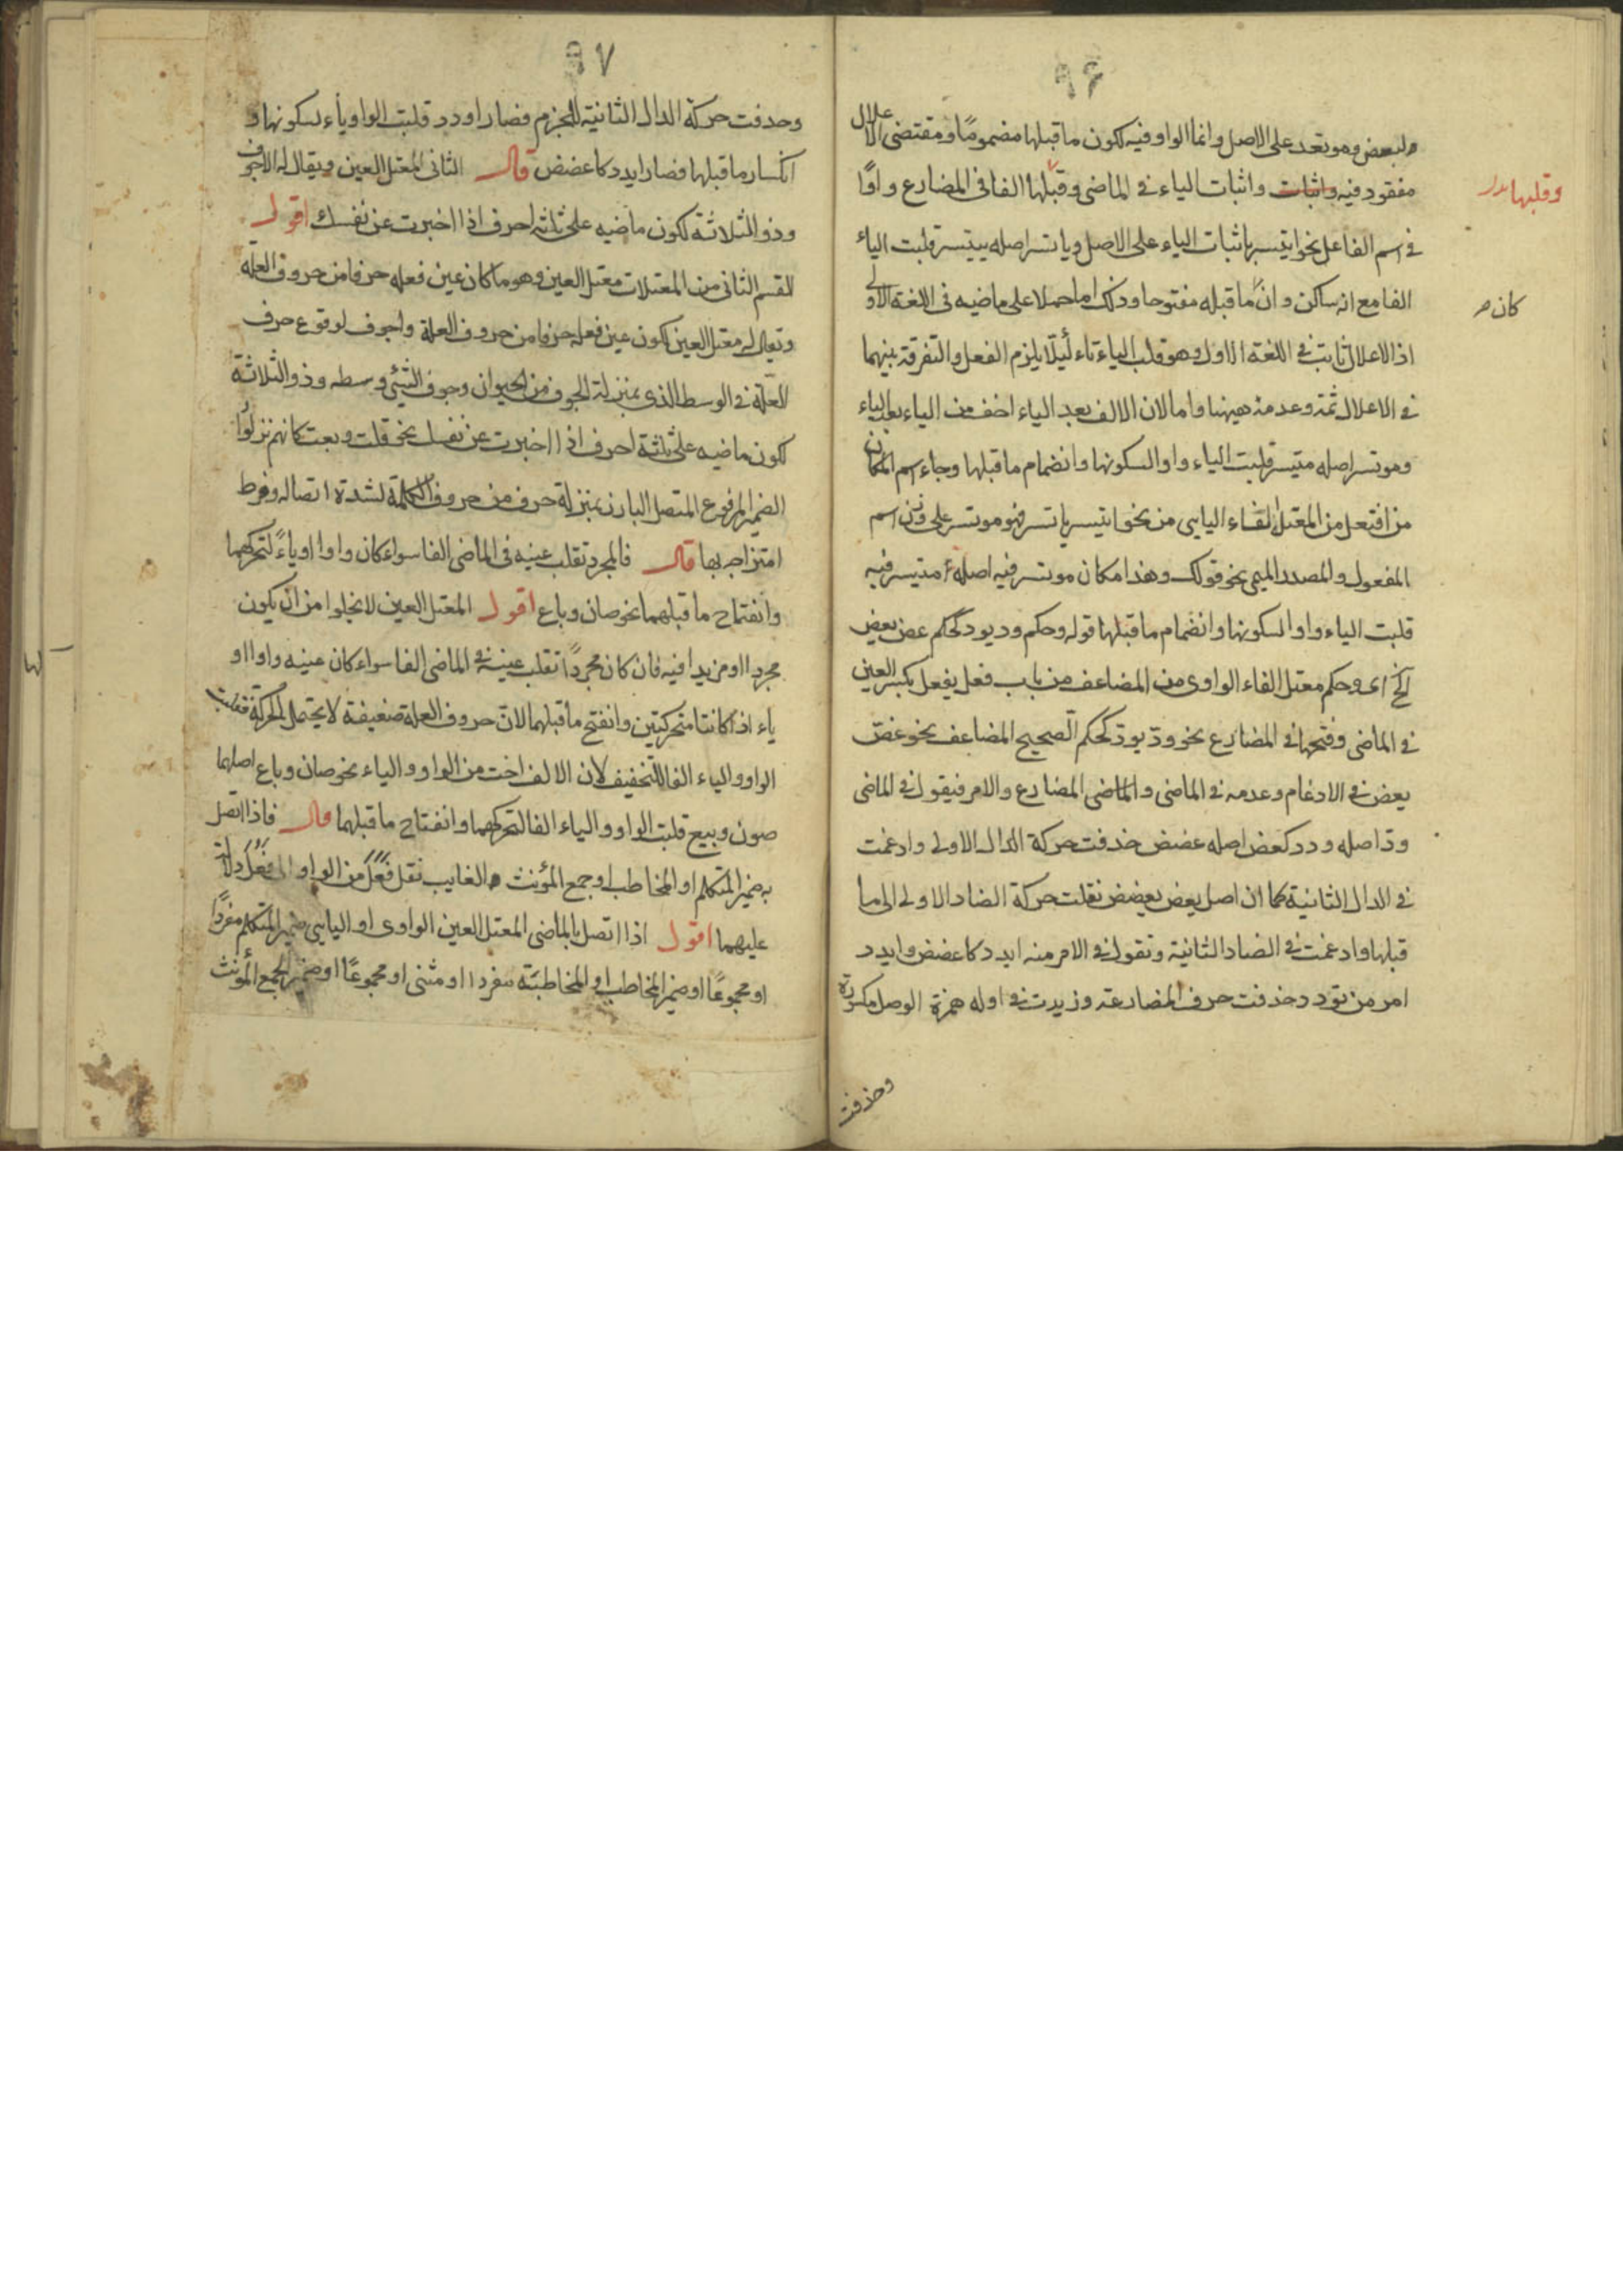 ٩٦
ولبعض وموتعد على الاصل وانما الواو فيه لكون ما قبلها مضموما ومقتضى الاعلال
مفقود فيه واثبات واثبات الياء في الماضى وقبلها الفا فى المضارع واوًا
وقلبها بدل
فى اسم الفاعل نحو ايتسر باثبات الياء على الاصل وياتسر اصله ييتسر قلبت الياء
الفا مع انه ساكن وان ما قبله مفتوحا وذلك اما حملا على ماضيه فى اللغة الاولى
كان
اذ الاعلال ثابت فى اللغة الاولى وهو قلب الياء تاء لئلا يلزم الفعل والتفرقة بينهما
فى الاعلال ثمة وعدمه ههنا واما لان الالف بعد الياء اخف من الياء بعد الياء
وموتسر اصله ميتسر قلبت الياء واوا لسكونها وانضمام ما قبلها وجاء اسم المكان
من افتعل من المعتل الفاء اليايى من نحو ايتسر ياتسر فهو موتسر على وزن اسم
المفعول والمصدر الميمى نحو قولك وهذا مكان موتسر فيه اصله ميتسر فيه
قلبت الياء واوا لسكونها وانضمام ما قبلها قوله وحكم ود يود كحكم عض يعض
الخ اى وحكم معتل الفاء الواوى من المضاعف من باب فعل يفعل بكسر العين
فى الماضى وفتحها فى المضارع نحو ود يود كحكم الصحيح المضاعف نحو عض
يعض فى الادغام وعدمه فى الماضى والماضى المضارع والامر فيقول فى الماضى
ود اصله ودد كعض اصله عضض حذفت حركة الدال الاولى وادغمت
فى الدال الثانية كما ان اصل يعض يعضض نقلت حركة الضاد الاولى الى ما
قبلها وادغمت فى الضاد الثانية وتقول فى الامر منه ايدد كاعضض وايدد
امر من تودد حذفت حرف المضارعة وزيدت فى اوله همزة الوصل مكسورة
وحذفت
٩٧
وحذفت حركة الدال الثانية للجزم فصار اودد قلبت الواو ياء لسكونها و
انكسار ما قبلها فصار ايدد كاعضض قال الثانى المعتل العين ويقال له الاجوف
وذو الثلاثة لكون ماضيه على ثلثة احرف اذا اخبرت عن نفسك اقول
القسم الثانى من المعتلات معتل العين وهو ما كان عين فعله حرفا من حروف العلة
ويقال له معتل العين لكون عين فعله حرفا من حروف العلة واجوف لوقوع حرف
العلة فى الوسط الذى بمنزلة الجوف من الحيوان وجوف الشئ وسطه وذو الثلاثة
لكون ماضيه على ثلثة احرف اذا اخبرت عن نفسك نحو قلت وبعت كانهم نزلوا
الضمير المرفوع المتصل البارز بمنزلة حرف من حروف الكلمة لشدة اتصاله وفرط
امتزاجه بها قال فالمجرد تقلب عينه فى الماضى الفا سواء كان واوا او ياءً لتحركهما
وانفتاح ما قبلهما نحو صان وباع اقول المعتل العين لا يخلوا من ان يكون
مجردا او مزيدا فيه فان كان مجردًا تقلب عينه فى الماضى الفا سواء كان عينه واوا او
ياء اذا كانتا متحركتين وانفتح ما قبلهما لان حروف العلة ضعيفة لا يحتمل الحركة فقلبت
الواو والياء الفا للتخفيف لان الالف اخت من الواو والياء نحو صان وباع اصلهما
صون وبيع قلبت الواو والياء الفا لتحركهما وانفتاح ما قبلهما قال فاذا اتصل
به ضمير المتكلم او المخاطب او جمع المؤنث الغايب نقل فعل من الواو الى فعل دلالة
عليهما اقول اذا اتصل بالماضى المعتل العين الواوى او اليايى ضمير المتكلم مفردًا
او مجموعًا او ضمير المخاطب او المخاطبة مفردا او مثنى او مجموعًا او ضمير الجمع المؤنث